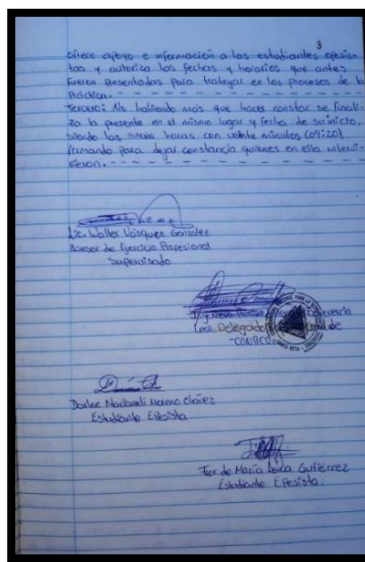 3
ofrece apoyo e información a las estudiantes epesis-
tas y autoriza las fechas y horarios que antes
fueron presentadas para trabajar en los procesos de la
Práctica. - - - - - - - - - - - - - - - -
Tercero: No habiendo más que hacer constar se finali-
za la presente en el mismo lugar y fecha de su inicio,
siendo las nueve horas con veinte minutos (09:20),
firmando para dejar constancia quienes en ella intervi-
nieron. - - - - - - - - - - - - - - - -
Lic. Walter Vásquez González
Asesor de Ejercicio Profesional
Supervisado
Delegado
de
Dorlee Maribeli Moreno Chávez
Estudiante Epesista
Flor de María Gutiérrez
Estudiante Epesista.